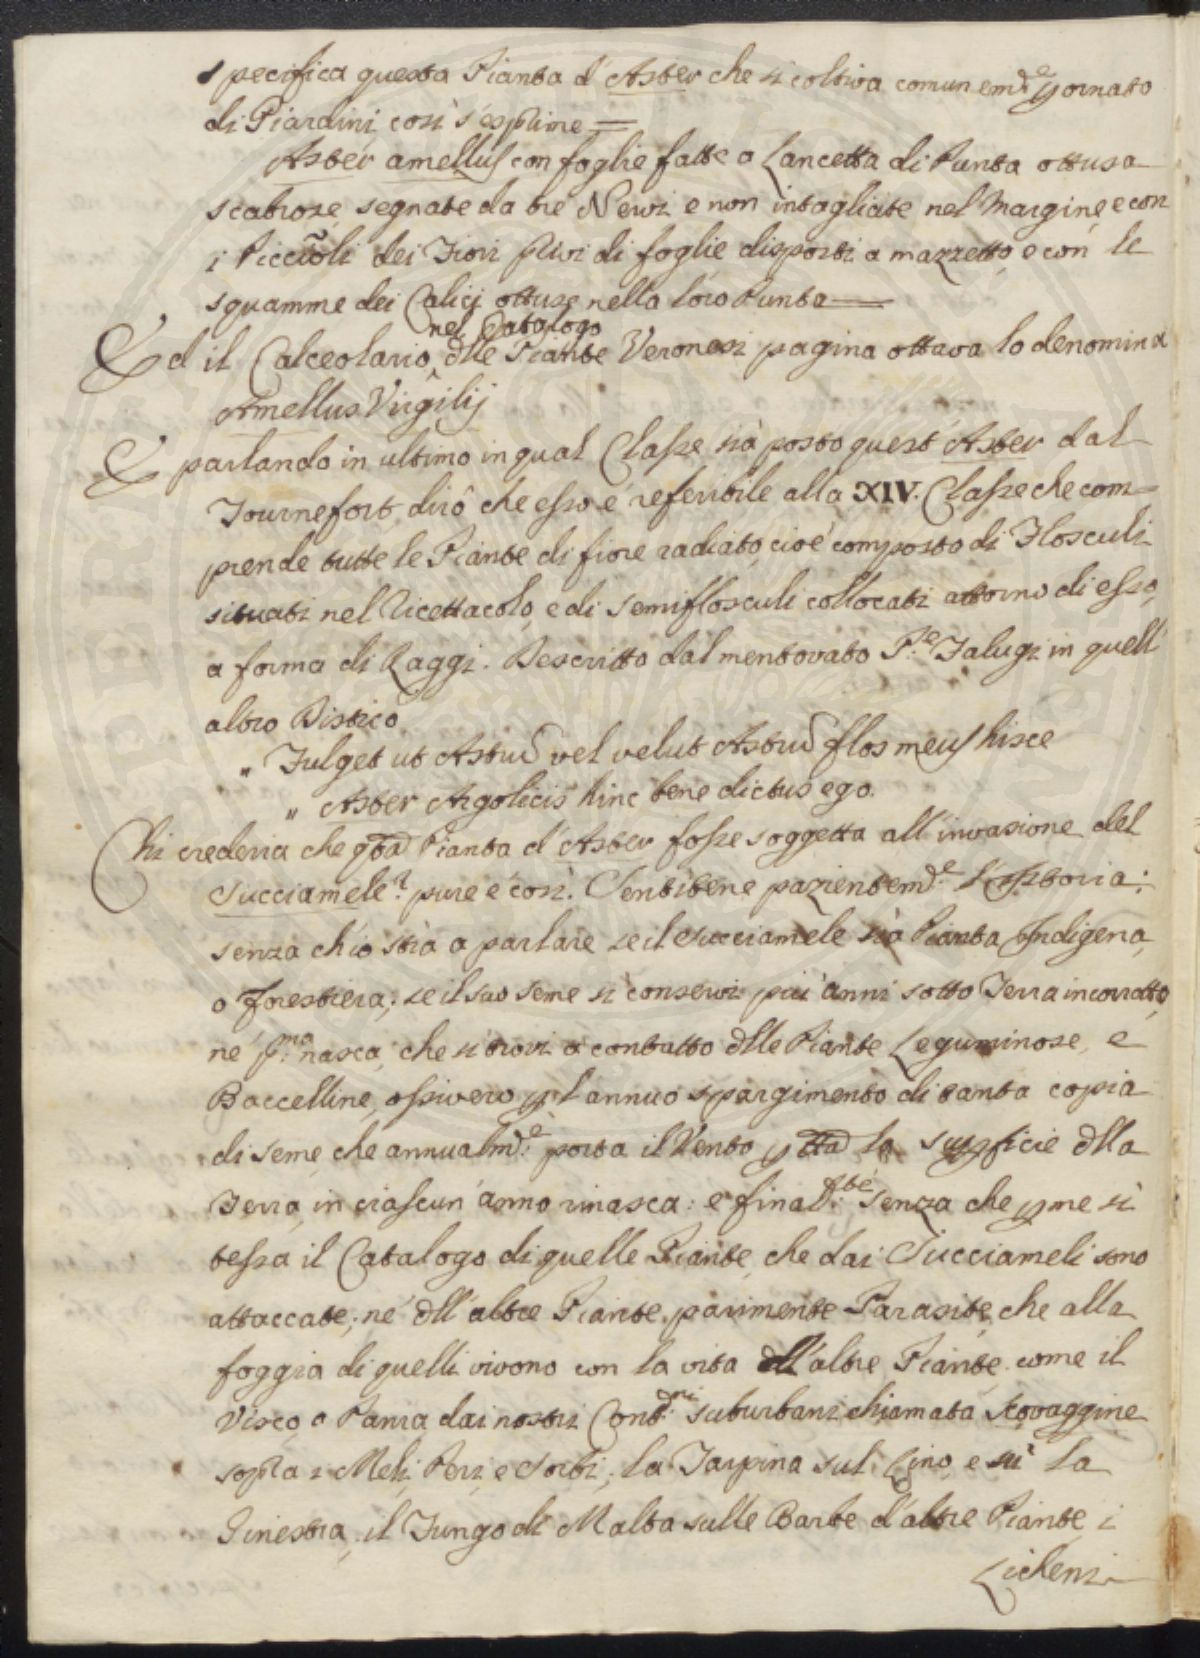 specifica questa Pianta d'Aster che si coltiva comunemᵗᵉ p ornato
di Giardini così s'esprime =
Aster amellus con foglie fatte a Lancetta di Punta ottusa
scabrose, segnate da tre Nervi e non intagliate nel Margine, e con
i Picciõli dei Fiori privi di foglie disposti a mazzetto, e con le
squamme dei Calici ottuse nella loro Punta
nel Catalogo
Ed il Calceolario, dlle Piante Veronesi pagina ottava lo denomina
Amellus Virgilij
E parlando in ultimo in qual Classe sia posto quest'Aster dal
Tournefort dirò che esso è referibile alla XIV. Classe che com=
prende tutte le Piante di fiore radiato, cioè composto di Flosculi
situati nel Ricettacolo, e di semiflosculi collocati attorno di esso,
a forma di Raggi. Descritto dal mentovato P.ᵉ Falugi in quell'
altro Distico
" Fulget ut Astrũ vel velut Astrũ flos meus hisce
" Aster Argolicis hinc bene dictus ego.
Chi crederia che qta Pianta d'Aster fosse soggetta all'invasione del
Succiamele? pure è così. Senti bene pazientemᵗᵉ l'Istoria:
senza ch'io stia a parlare se il Succiamele sia Pianta Indigena,
o forestiera; se il suo seme si conservi più anni sotto Terra incorrotto,
nè p.ᵐᵃ nasca, che si trovi a contatto dlle Piante Leguminose, e
Baccelline, ossivero pl annuo spargimento di tanta copia
di seme, che annualmᵗᵉ porta il Vento p tta la supficie dlla
Terra, in ciascun anno rinasca: e finalᵗᵉ senza che p me si
tessa il Catalogo di quelle Piante, che dai Succiameli sono
attaccate; nè dll'altre Piante parimente Parasite, che alla
foggia di quelli vivono con la vita dll'altre Piante come il
Visco o Pania dai nostri Contᵈⁿⁱ suburbani chiamata Scovaggine
sopra i Meli, Peri, e Sorbi; la Tarpina sul Lino, e su la
Ginestra, il Fungo di Malta sulle Barbe d'altre Piante, i
Licheni